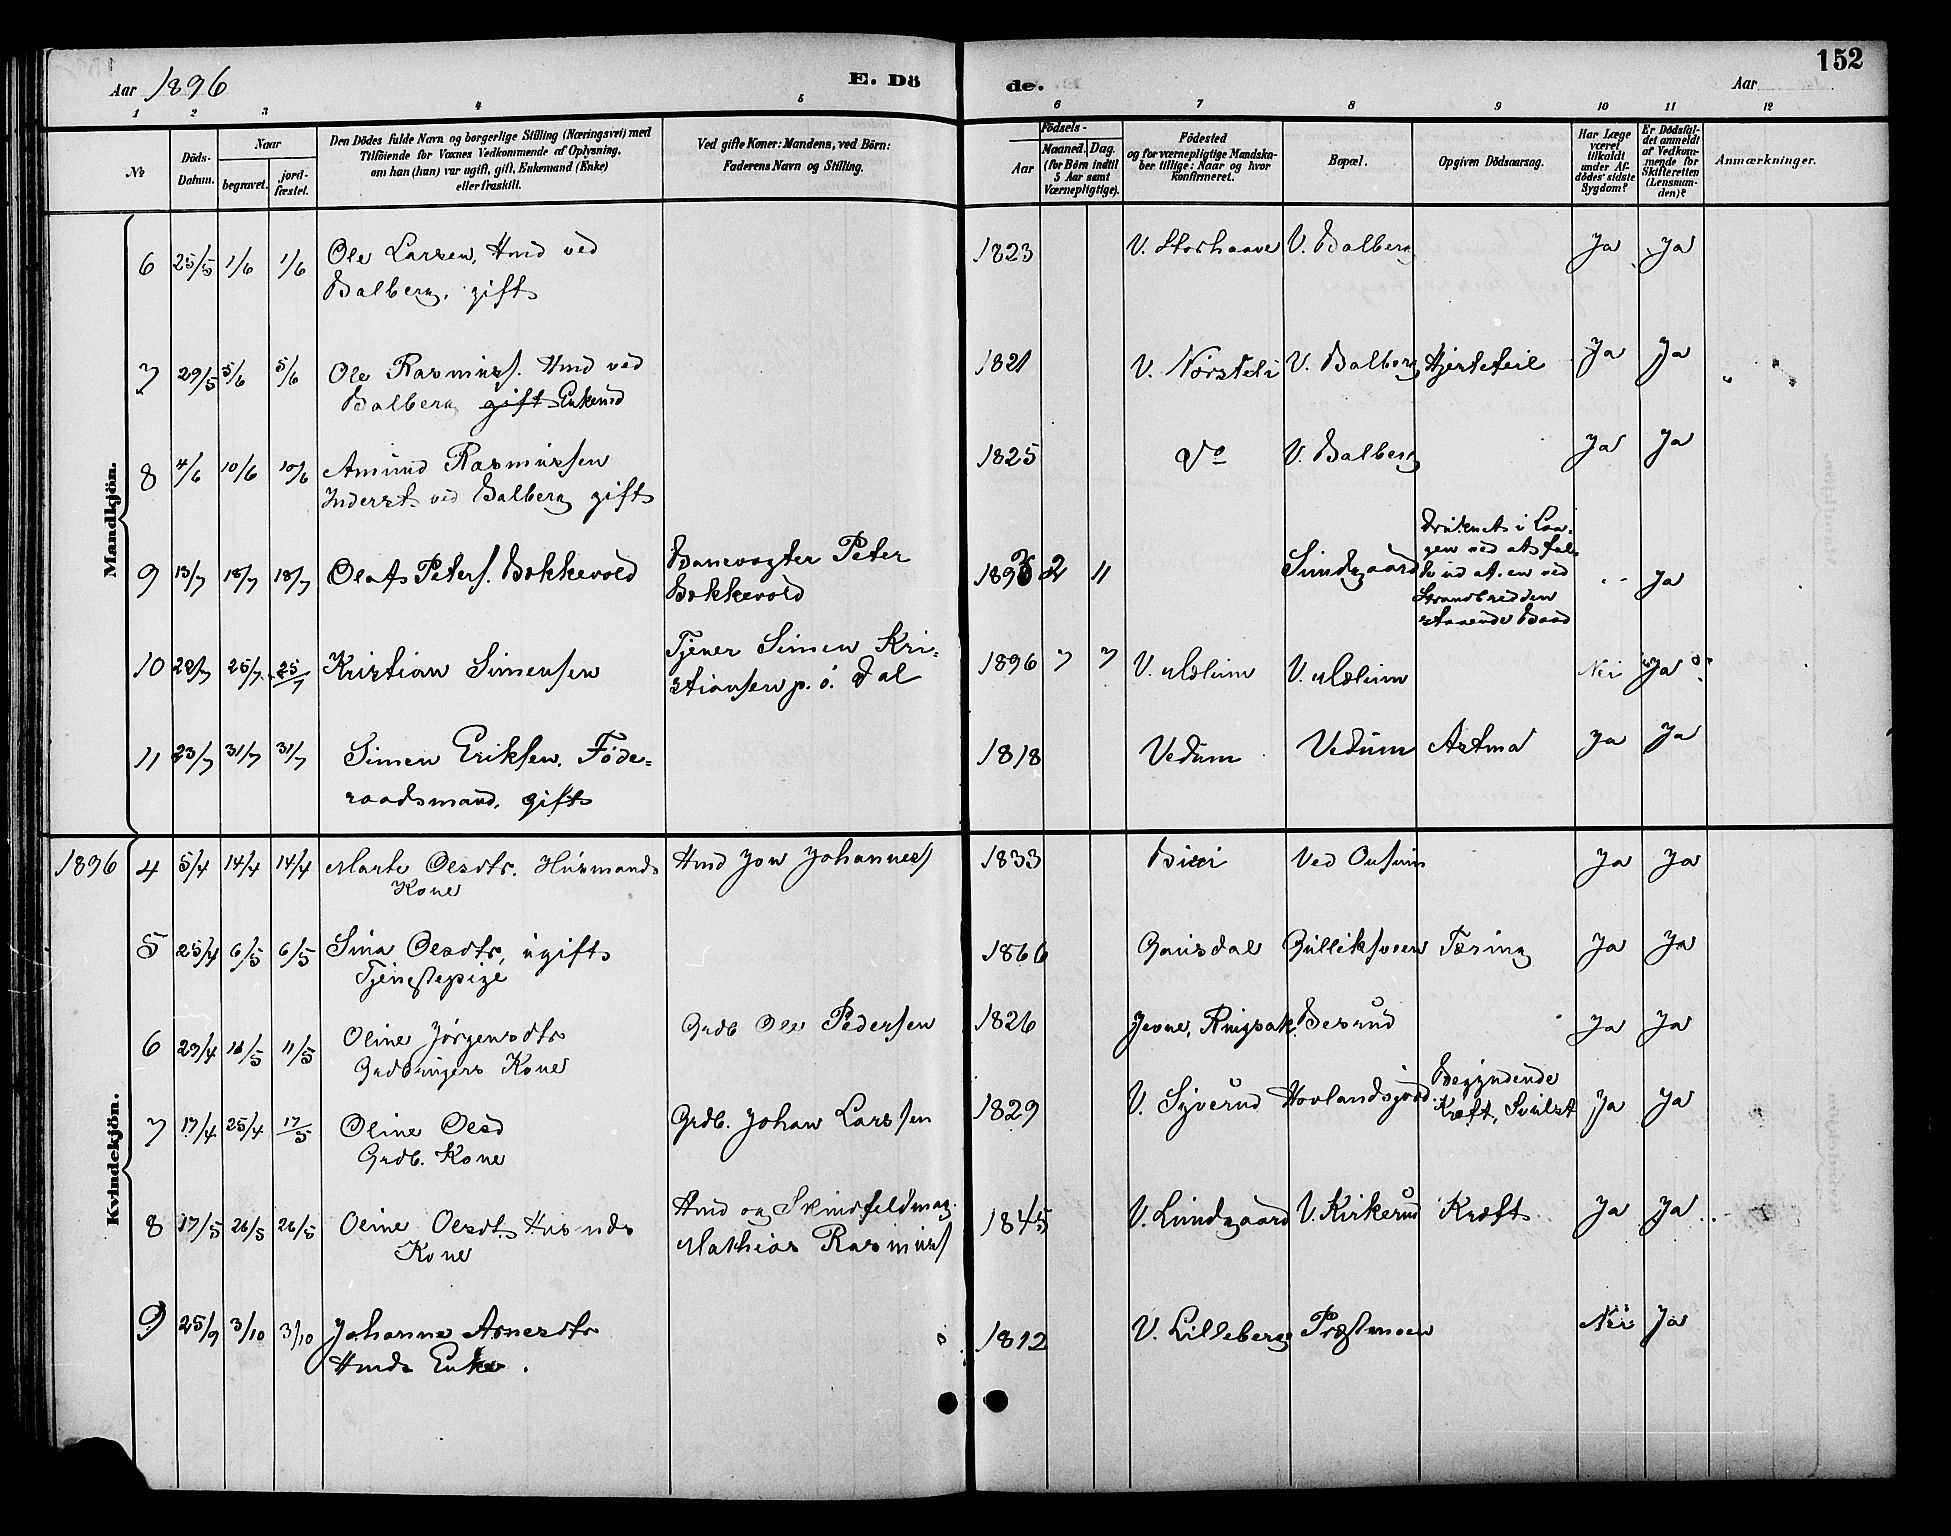 Aar 1896 E. Dö de. Aar 152
1 2 3 4 5 6 7 8 9 10 11 12
№
Döds-
Datum.
Naar
begravet.
jord-
fæstet.
Den Dödes fulde Navn og borgerlige Stilling (Næringsvei) med
Tilföiende for Voxnes Vedkommende af Oplysning,
om han (hun) var ugift, gift, Enkemand (Enke)
eller fraskilt.
Ved gifte Koner: Mandens, ved Börn:
Faderens Navn og Stilling.
Aar
Födsels-
Maaned. Dag.
(for Börn indtil
5 Aar samt
Værnepligtige).
Födested
og for værnepligtige Mandska-
ber tillige: Naar og hvor
konfirmeret.
Bopæl.
Opgiven Dödsaarsag.
Har Læge
været
tilkaldt
under Af-
dödes' sidste
Sygdom?
Er Dödsfal-
det anmeldt
af Vedkom-
mende for
Skifteretten
(Lensman-
den)?
Anmærkninger.
Mandkjön.
6 25/5 1/6 1/6 Ole Larsen, Hmd ved 1823 V. Storhaave V. Balberg Ja Ja
Balberg, gift
7 29/5 5/6 5/6 Ole Rasmuss. Hmd ved 1821 V. Nörsteli V. Balberg Hjertefeil Ja Ja
Balberg gift Enkemd
8 4/6 10/6 10/6 Amund Rasmussen 1825 Do V. Balberg Ja Ja
Inderst ved Balberg gift
9 13/7 18/7 18/7 Olaf Peters. Bokkevold Banevogter Peter 1893 2 11 Sundgaard Ja
Bokkevold
Druknet i Laa-
gen ved at fal-
de ud af en ved
Strandbredden
staaende Baad
10 25/7 25/7 Kristian Simensen Tjener Simen Kri- 1896 7 7 Nei Ja
stiansen p. ö. Dal
11 23/7 31/7 31/7 Simen Eriksen, Föde- 1818 Vedum Vedum Astma Ja Ja
raadsmand, gift
Kvindekjön.
1896 4 5/4 14/4 14/4 Marte Olesdtr. Husmands Hmd Jon Johannes 1833 Biri Ja Ja
Kone
5 25/4 6/5 6/5 Sina Olesdtr, ugift 1866 Gausdal Gulliksveen Tæring Ja Ja
Tjenestepige
6 29/4 11/5 11/5 Oline Jörgensdtr Grdb Ole Pedersen 1826 Jevne, Ringsak. Besrud Ja Ja
Grdbrugers Kone
7 17/4 25/4 17/5 Oline Olesd Grdb. Johan Larssen 1829 V. Syverud Hovlandsjord Begyndende
Kræft, Svulst Ja Ja
Grdb. Kone
8 17/5 26/5 26/5 Oline Olesdt. Husmds Hmd og Skindfeldmag. 1845 V. Lundgaard V. Kirkerud Kræft Ja Ja
Kone Mathias Rasmuss
9 25/9 3/10 3/10 Johanne Arnesdtr 1812 V. Lilleberg Præstmoen Nei Ja
Hmds Enke.